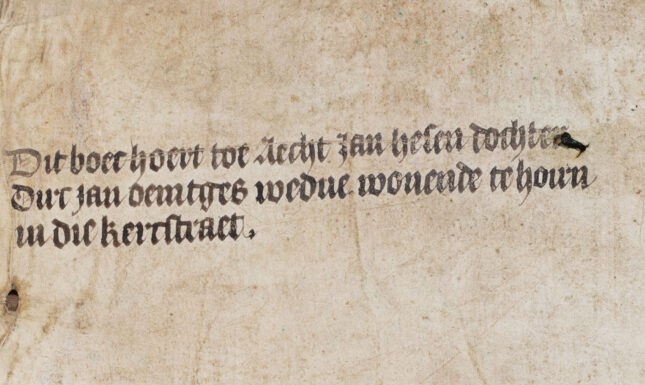 Dit boec hoert toe Aecht Jan hesen dochter
Dirc Jan oemtges wedue wonende te hoirn
in die kercstraet.